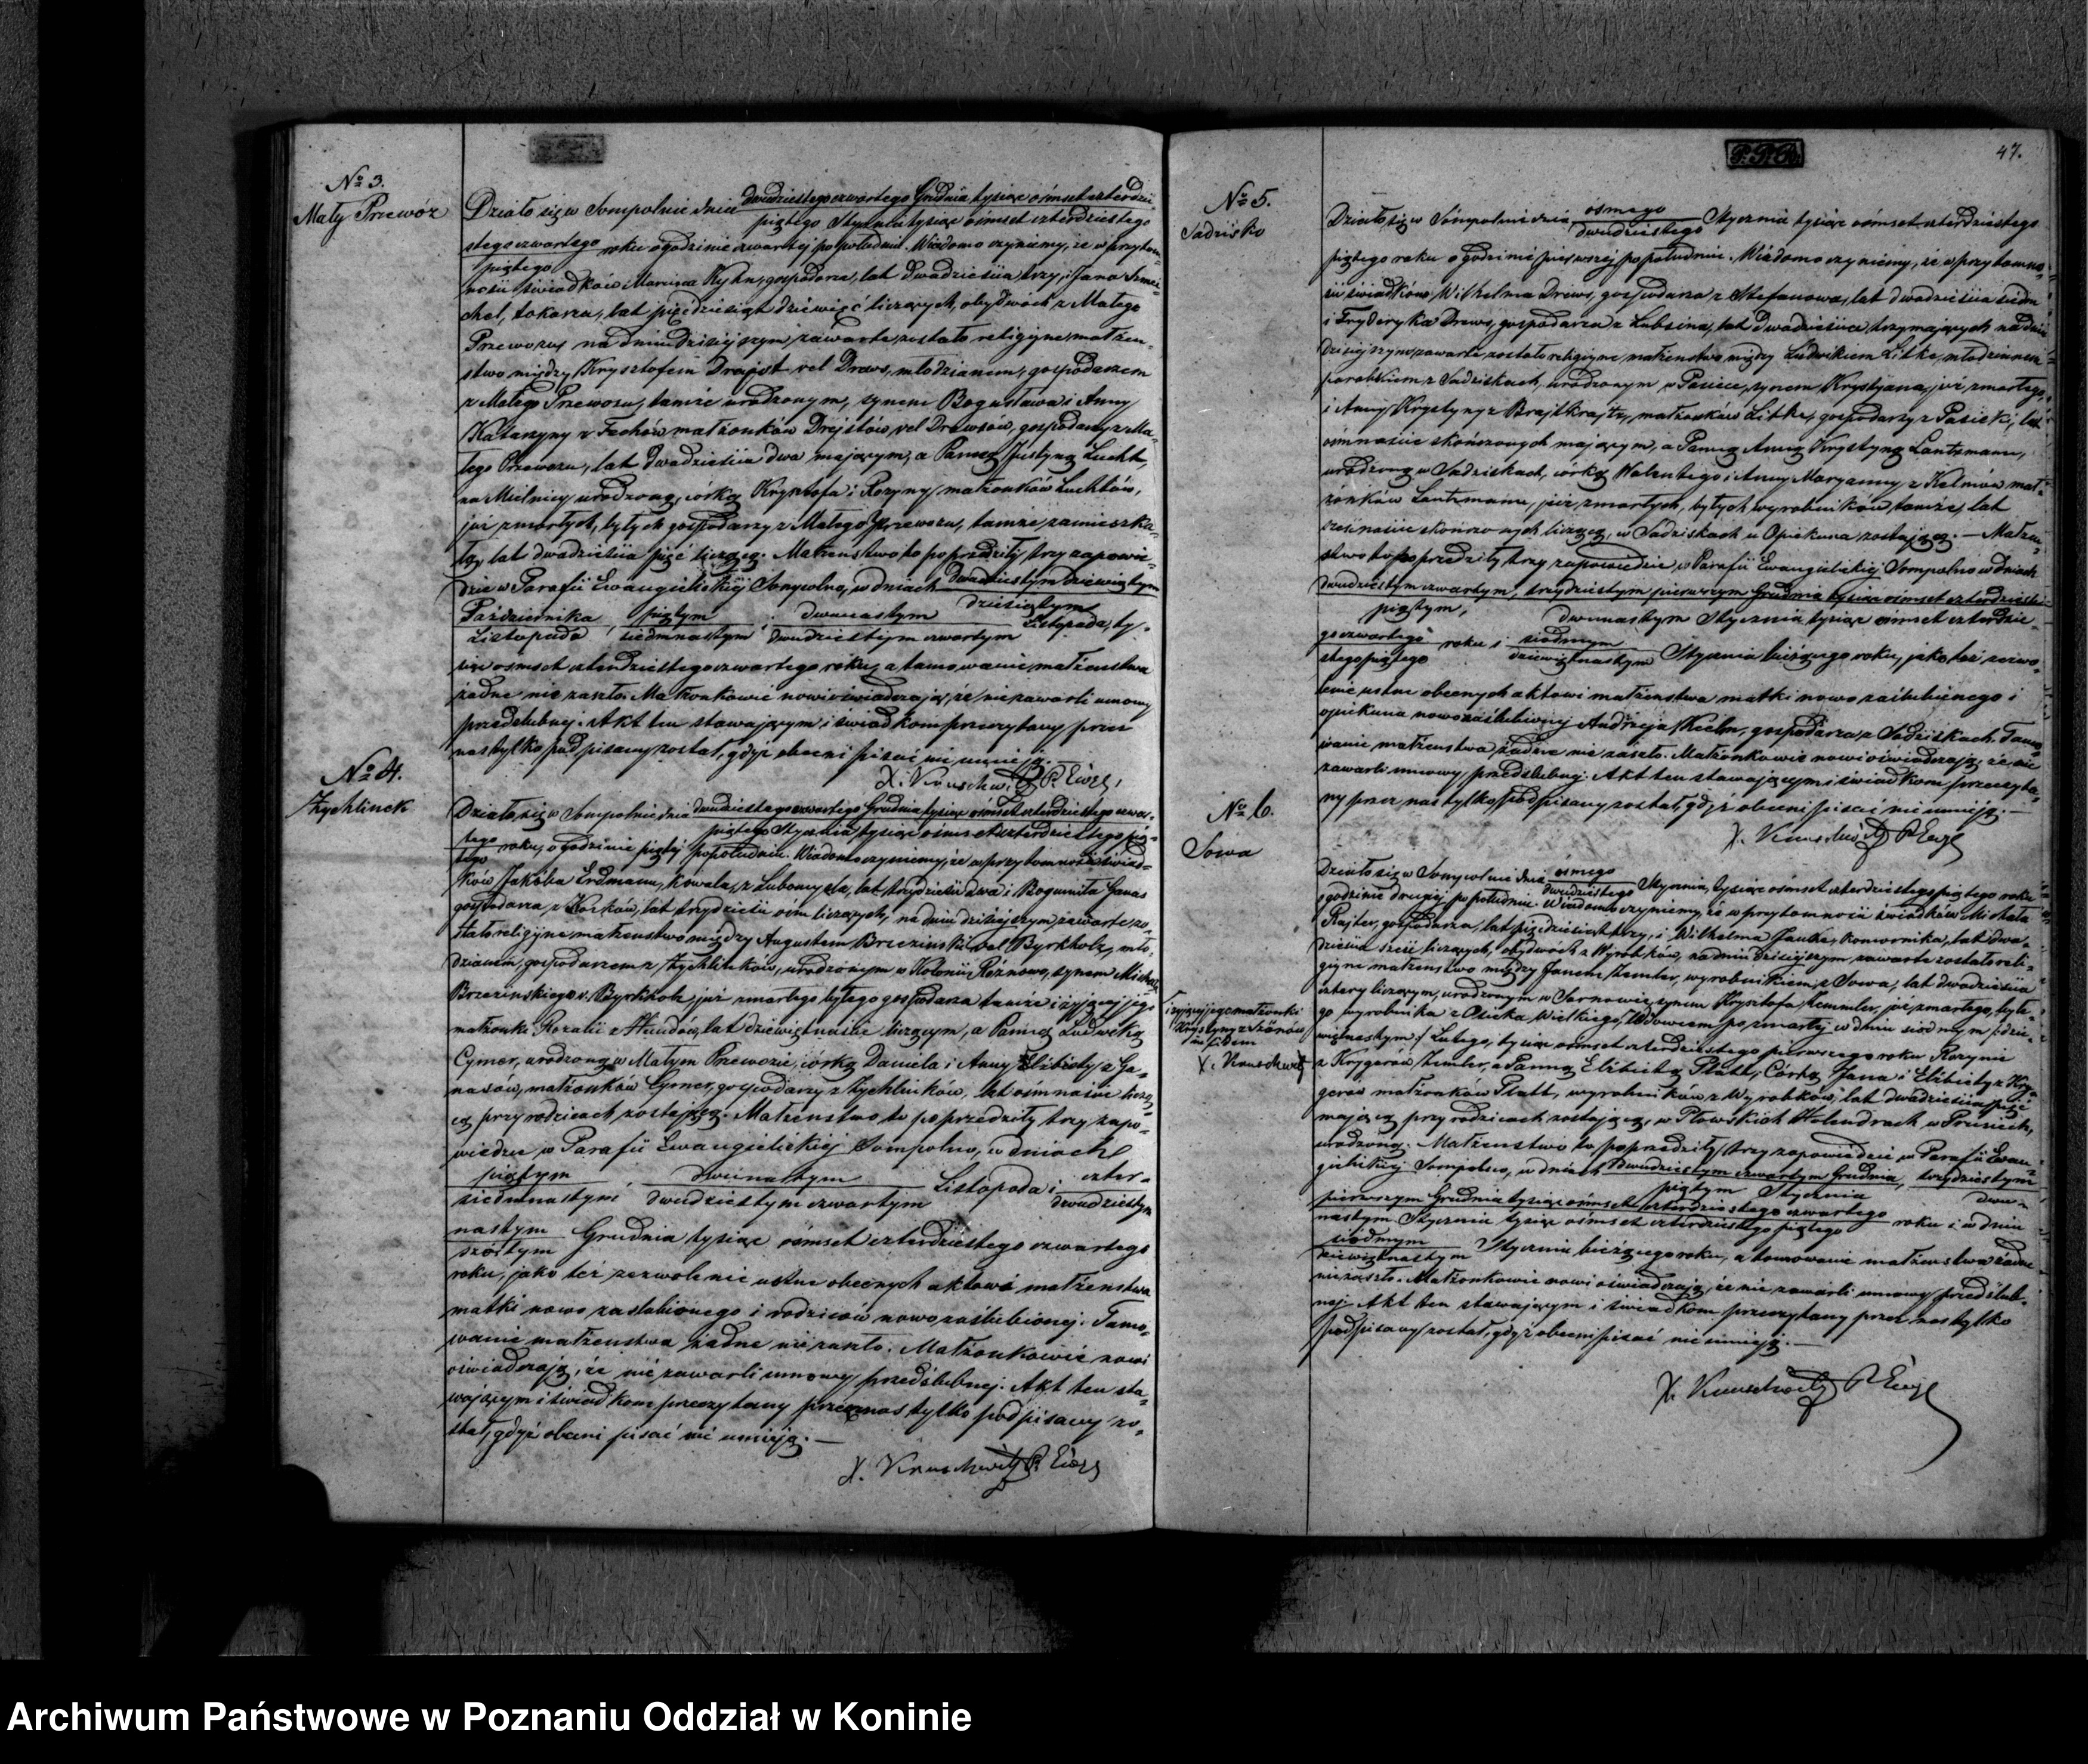 № 3.
Mały Przewóz
Działo się w Sompolnie dnia dwudziestego czwartego Grudnia tysiąc ośmset czterdzie-
piątego Stycznia tysiąc ośmset czterdziestego
stego czwartego roku o godzinie czwartej po południu. Wiadomo czyniemy, że w przytom-
piątego
ności świadków Marcina Kyhn, gospodarza, lat dwadzieścia trzy, i Jana
chel, tokarza, lat pięćdziesiąt dziewięć liczących, obydwóch z Małego
Przewozu, na dniu dzisiejszym zawarte zostało religijne małżeń-
stwo między Krysztofem Drajst vel Drews, młodzianem, gospodarzem
z Małego Przewozu, tamże urodzonym, synem Bogusława i Anny
Katarzyny z Fechów małżonków Drejstów vel Drewsów, gospodarzy z Ma-
łego Przewozu, lat dwadzieścia dwa mającym, a Panną Justyną Lucht,
na Mielnicy urodzoną, córką Krysztofa i Rozyny małżonków Luchtów,
już zmarłych, byłych gospodarzy z Małego Przewozu, tamże zamieszka-
łą, lat dwadzieścia pięć liczącą. Małżeństwo to poprzedziły trzy zapowie-
dzie w Parafii Ewangielickiej Sompolno, w dniach dwudziestym dziewiątym
dziesiątym
Października, piątym, dwunastym Listopada, ty-
Listopada siedmnastym dwudziestym czwartym
siąc ośmset czterdziestego czwartego roku, a tamowanie małżeństwa
żadne nie zaszło. Małżonkowie nowi oświadczają, że nie zawarli umowy
przedślubnej. Akt ten stawającym i świadkom przeczytany przez
nas tylko podpisany został, gdyż obecni pisać nie umieją.
№ 4.
Zychlinek
Działo się w Sompolnie dnia dwudziestego czwartego Grudnia tysiąc ośmset czterdziestego czwar-
piątego Stycznia tysiąc ośmset czterdziestego pią-
tego roku, o godzinie piątej popołudniu. Wiadomo czyniemy, że w przytomności świad-
tego
ków Jakóba Erdmann, kowala, z Lubomyśla, lat trzydzieści dwa i Bogumiła Ganas
gospodarza, z, lat trzydzieści ośm liczących, na dniu dzisiejszym zawarte zo-
stało religijne małżeństwo między Augustem Brzezinski vel Byrkholz, mło-
dzianem, gospodarzem z Zychlinków, urodzonym w Kolonii Różnowo, synem Michała
Brzezinskiego v. Byrkholz już zmarłego byłego gospodarza tamże i żyjącej jego
małżonki Rozalii z, lat dziewiętnaście liczącym, a Panną Ludwiką
Cymer, urodzoną w Małym Przewozie, córką Daniela i Anny Elżbiety z Ga-
nasów, małżonków Cymer, gospodarzy z Zychlinków, lat ośmnaście liczą-
cą przy rodzicach zostającą. Małżeństwo to poprzedziły trzy zapo-
wiedzie w Parafii Ewangielickiej Sompolno, w dniach
piątym, dwunastym Listopada i czter-
siedmnastym dwudziestym czwartym dwudziestym
nastym Grudnia tysiąc ośmset czterdziestego czwartego
szóstym
roku, jako też zezwolenie ustne obecnych aktowi małżeństwa
matki nowo zaślubionego i rodziców nowozaślubionej. Tamo-
wanie małżeństwa żadne nie zaszło. Małżonkowie nowi
oświadczają, że nie zawarli umowy przedślubnej. Akt ten sta-
wającym i świadkom przeczytany przez nas tylko podpisany zo-
stał, gdyż obecni pisać nie umieją. —
P.P.C.
47.
№ 5.
Sadzisko
Działo się w Sompolnie dnia ósmego Stycznia tysiąc ośmset czterdziestego
dwudziestego
piątego roku o godzinie pierwszej po południu. Wiadomo czyniemy, że w przytomno-
ści świadków Wilhelma Drews, gospodarza z Stefanowa, lat dwadzieścia siedm
i Fryderyka Drews, gospodarza z Lubsina, lat dwadzieścia trzy mających na dniu
dzisiejszym zawarte zostało religijne małżeństwo między Ludwikiem Litke, młodzianem
parobkiem z Sadziskach, urodzonym w Pasiece, synem Krystyana, już zmarłego,
i Anny Krystyny z małżonków Litke, gospodarzy z Pasieki, lat
ośmnaście skończonych mającym, a Panną Anną Krystyną Lantzmann,
urodzoną w Sadziskach, córką Walentego i Anny Maryanny z Kelmów mał-
żonków Lantzmann, już zmarłych, byłych wyrobników tamże, lat
szesnaście skończonych liczącą, w Sadziskach u Opiekuna zostającą. — Małżeń-
stwo to poprzedziły trzy zapowiedzie, w Parafii Ewangielickiej Sompolno w dniach
dwudziestym czwartym, trzydziestym pierwszym Grudnia tysiąc ośmset czterdzieste-
piątym, dwunastym Stycznia tysiąc ośmset czterdzie-
go czwartego roku i siódmym Stycznia bieżącego roku, jako też zezwo-
stego piątego dziewiętnastym
lenie ustne obecnych aktowi małżeństwa matki nowo zaślubionego i
opiekuna nowozaślubionej Andrzeja Kelm, gospodarza z Sadziskach. Tamo-
wanie małżeństwa żadne nie zaszło. Małżonkowie nowi oświadczają, że nie
zawarli umowy przedślubnej. Akt ten stawającym i świadkom przeczyta-
ny przez nas tylko podpisany został, gdyż obecni pisać nie umieją. —
№ 6.
Sowa
Działo się w Sompolnie dnia ósmego Stycznia, tysiąc ośmset czterdziestego piątego roku
dwudziestego
o godzinie drugiej po południu. Wiadomo czyniemy, że w przytomności świadków Michała
Rajter, gospodarza, lat pięćdziesiąt trzy, i Wilhelma Janke, komornika, lat dwa-
dzieścia sześć liczących, obydwóch z Wyrobków, na dniu dzisiejszym zawarte zostało reli-
gijne małżeństwo między Janem Zemler, wyrobnikiem z Sowa, lat dwadzieścia
cztery liczącym, urodzonym w Sarnowie, synem Krysztofa Zemmler, już zmarłego, byłe-
go wyrobnika z Osieka Wielkiego, Wdowcem po zmarłej w dniu siódmym /dzie-
więtnastym/ Lutego, tysiąc ośmset czterdziestego pierwszego roku Rozynie
z Krygerów Zemler, a Panną Elżbietą Platt, Córką Jana i Elżbiety z Kry-
gerów małżonków Platt, wyrobników z Wyrobków, lat dwadzieścia pięć
mającą przy rodzicach zostającą, w Płowskich Holendrach w Prusiech,
urodzoną. Małżeństwo to poprzedziły trzy zapowiedzie w Parafii Ewan-
gielickiej Sompolno, w dniach dwudziestym czwartym Grudnia, trzydziestym
piątym Stycznia dwu-
pierwszym Grudnia tysiąc ośmset czterdziestego czwartego roku i w dniu
nastym Stycznia tysiąc ośmset czterdziestego piątego
siódmym Stycznia bieżącego roku, a tamowanie małżeństwa żadne
dziewiętnastym
nie zaszło. Małżonkowie nowi oświadczają, że nie zawarli umowy przedślub-
nej. Akt ten stawającym i świadkom przeczytany przez nas tylko
podpisany został, gdyż obecni pisać nie umieją. —
i żyjącej jego małżonki
Krystyny z
Archiwum Państwowe w Poznaniu Oddział w Koninie